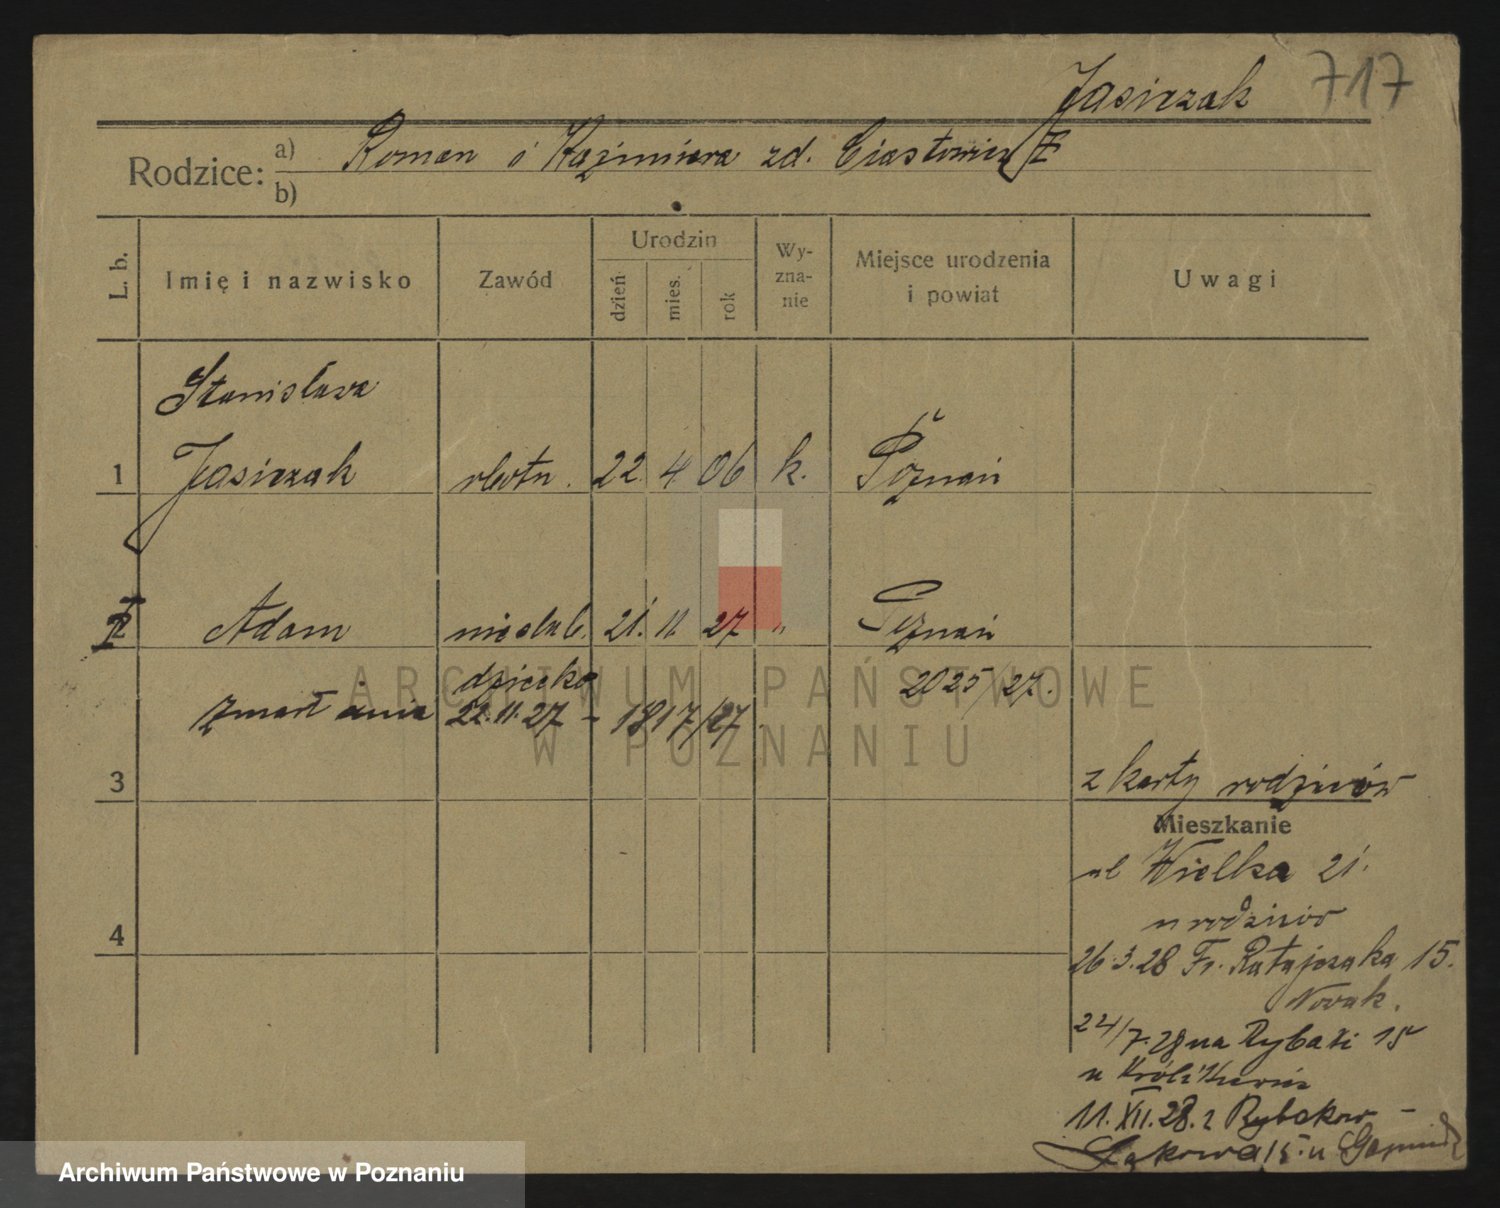 Jasiczak 717
Rodzice: a) Roman i Kazimiera zd. Ciastowicz
b)
L. b. Imię i nazwisko Zawód Urodzin dzień mies. rok Wyznanie Miejsce urodzenia i powiat Uwagi
Stanisława
1 Jasiczak robotn. 22. 4. 06 k. Poznań
2 Adam nieślub. 21. 11. 27 " Poznań
dziecko 2025/27.
zmarł dnia 22.11.27 - 1817/27
3 z karty rodziców
Mieszkanie
ul Wielka 21.
u rodziców
4
26.3.28 Fr. Ratajczaka 15.
Nowak.
24/7.28 na Rybaki 15
u
11.XII.28. z Rybaków -
Łąkowa 15 u
ARCHIWUM PAŃSTWOWE
W POZNANIU
Archiwum Państwowe w Poznaniu